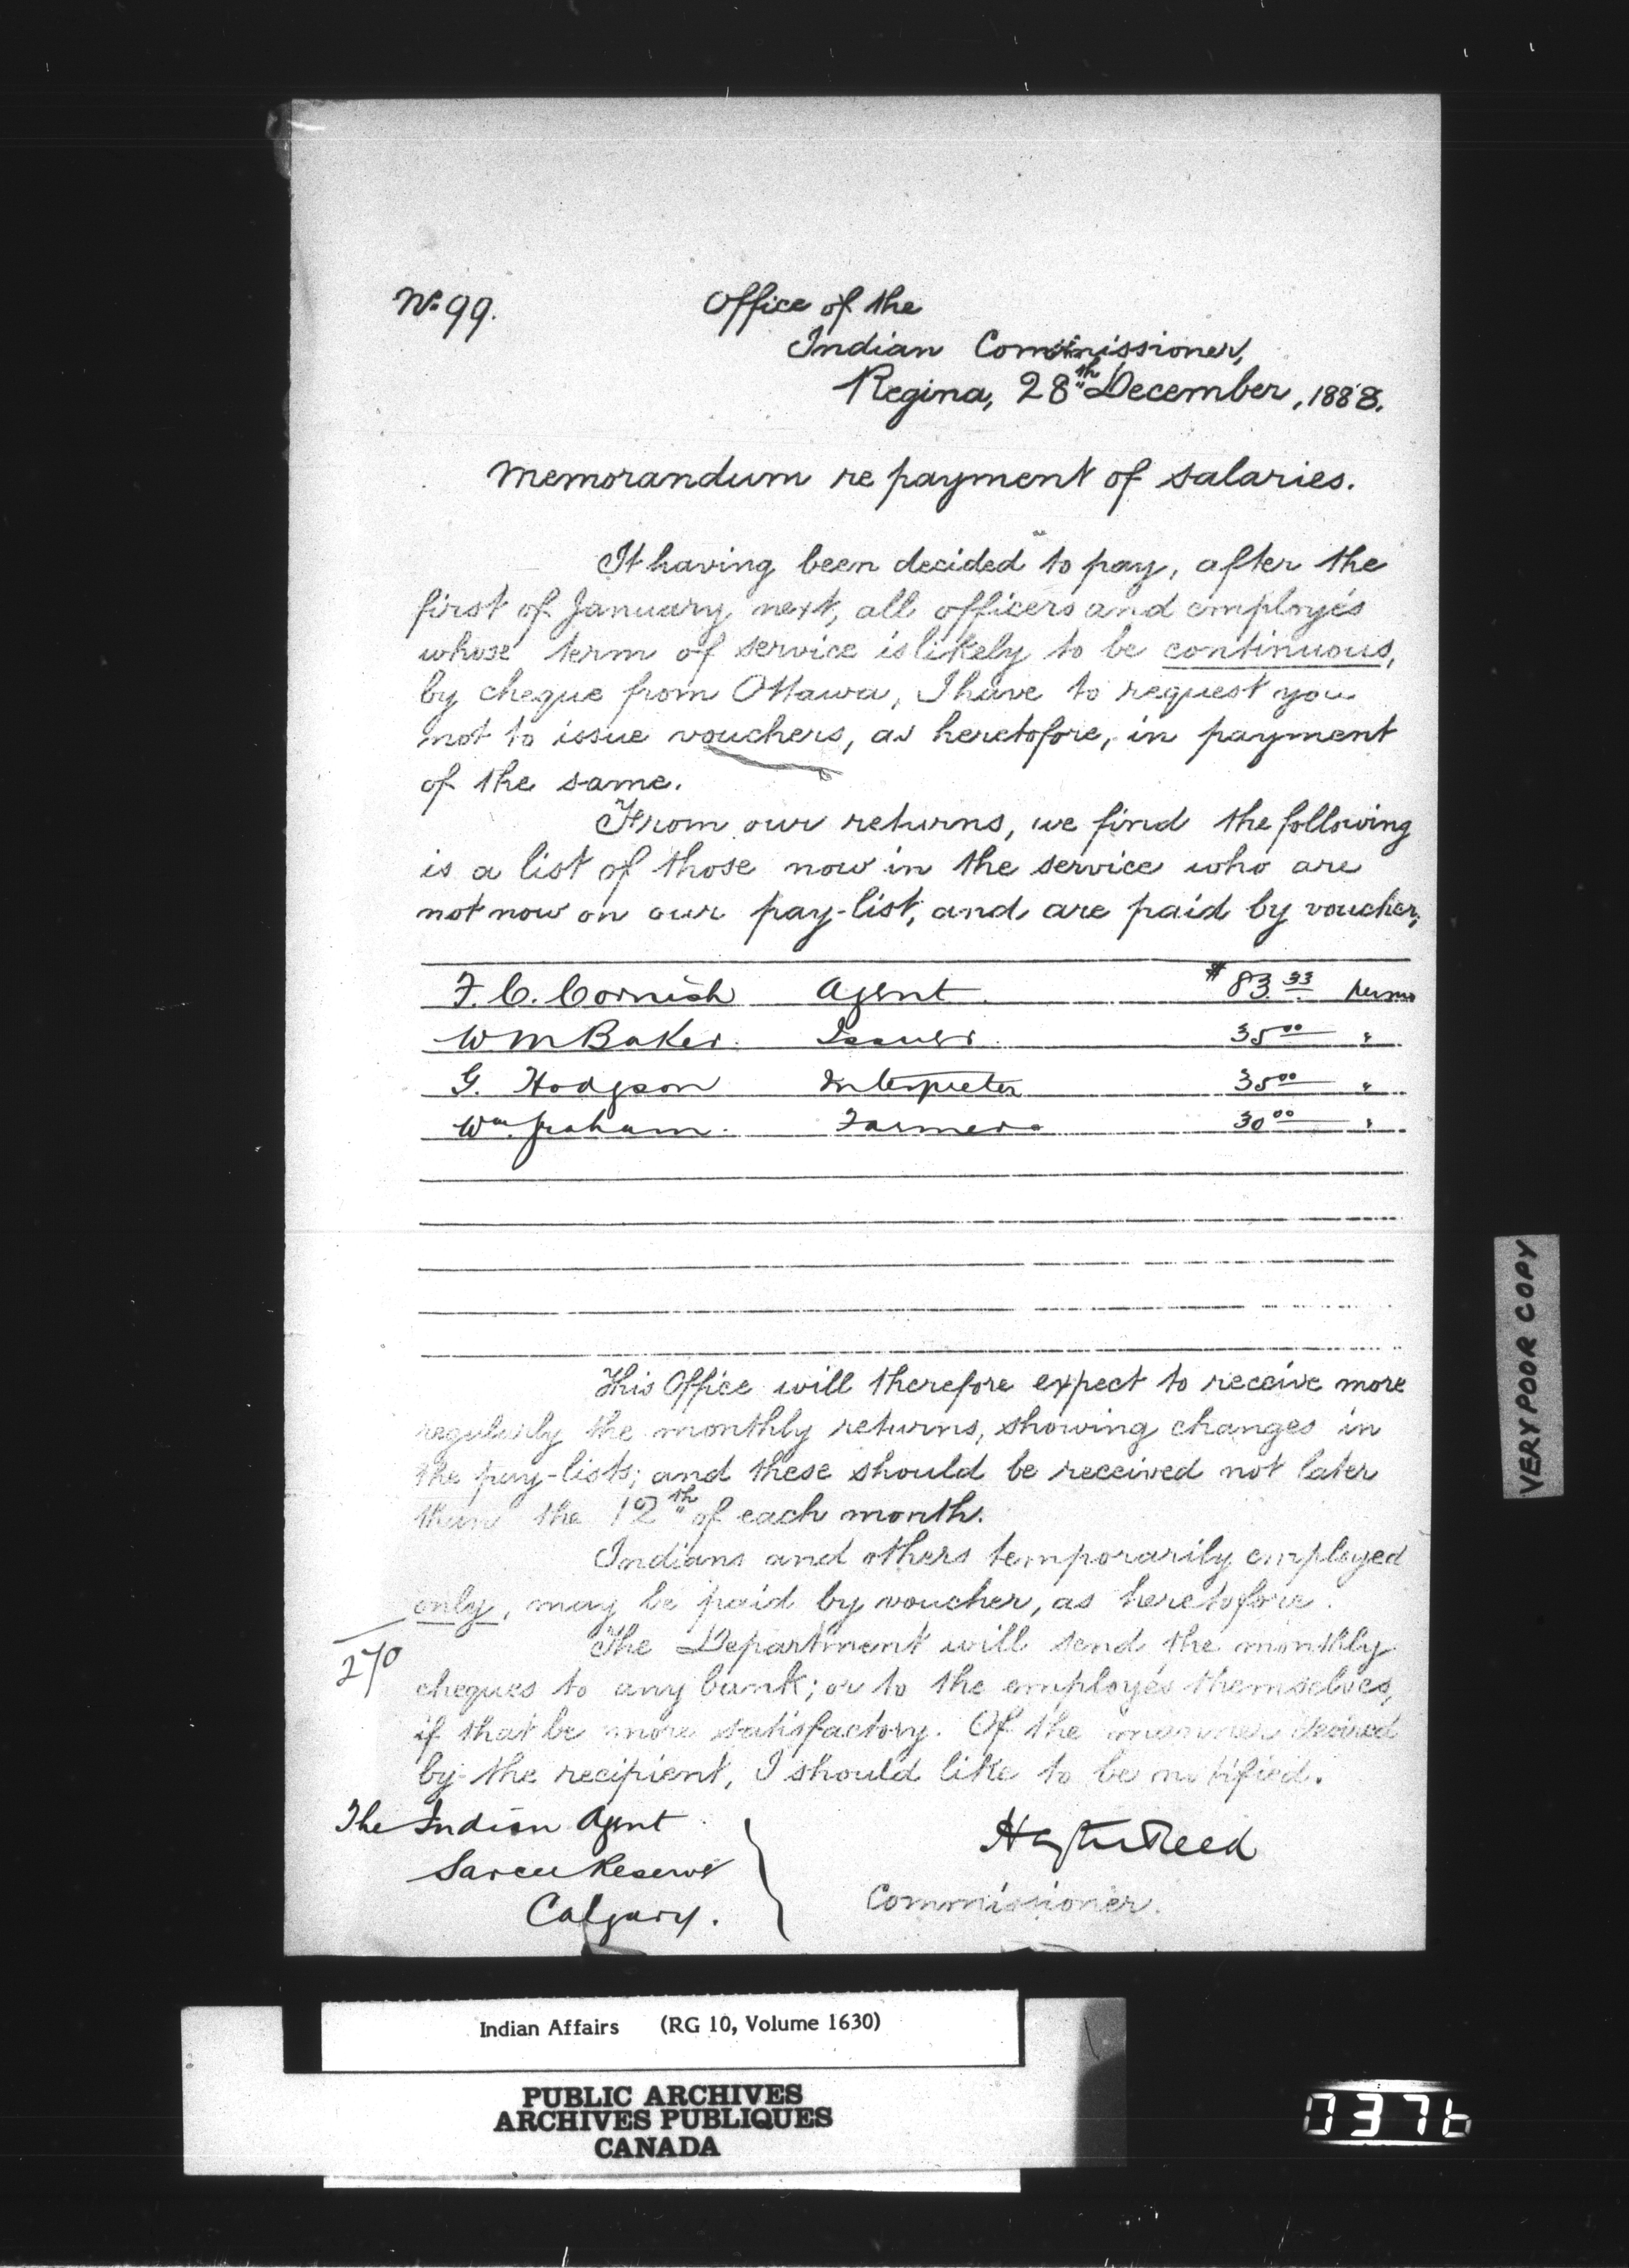 No 99.
Office of the
Indian Commissioner,
Regina, 28th December, 1888.
Memorandum re payment of salaries.
It having been decided to pay, after the
first of January next, all officers and employés
whose term of service is likely to be continuous,
by cheque from Ottawa, I have to request you
not to issue vouchers, as heretofore, in payment
of the same.
From our returns, we find the following
is a list of those now in the service who are
not now on our pay-list, and are paid by voucher;
F. C. Cornish Agent $83.33 per mo
Wm Baker. Issuer. 35 00 "
G. Hodgson Interpreter 35 00 "
Wm. Graham. Farmer 30 00 "
This Office will therefore expect to receive more
regularly the monthly returns, showing changes in
the pay-lists; and these should be received not later
than the 12th of each month.
Indians and others temporarily employed
only, may be paid by voucher, as heretofore.
270
The Department will send the monthly
cheques to any bank; or to the employés themselves,
if that be more satisfactory. Of the manner desired
by the recipient, I should like to be notified.
The Indian Agent
Sarcee Reserve
Calgary.
Hayter Reed
Commissioner.
VERY POOR COPY
Indian Affairs (RG 10, Volume 1630)
PUBLIC ARCHIVES
ARCHIVES PUBLIQUES
CANADA
0376